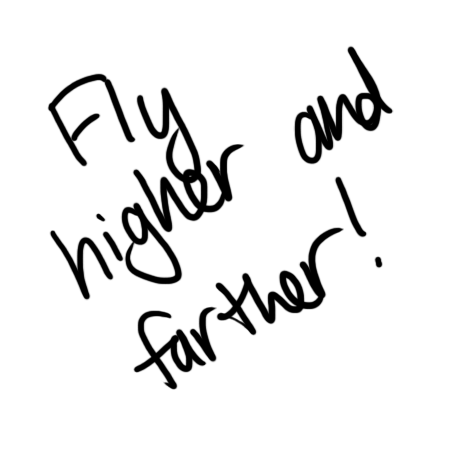 Fly
higher and
farther!